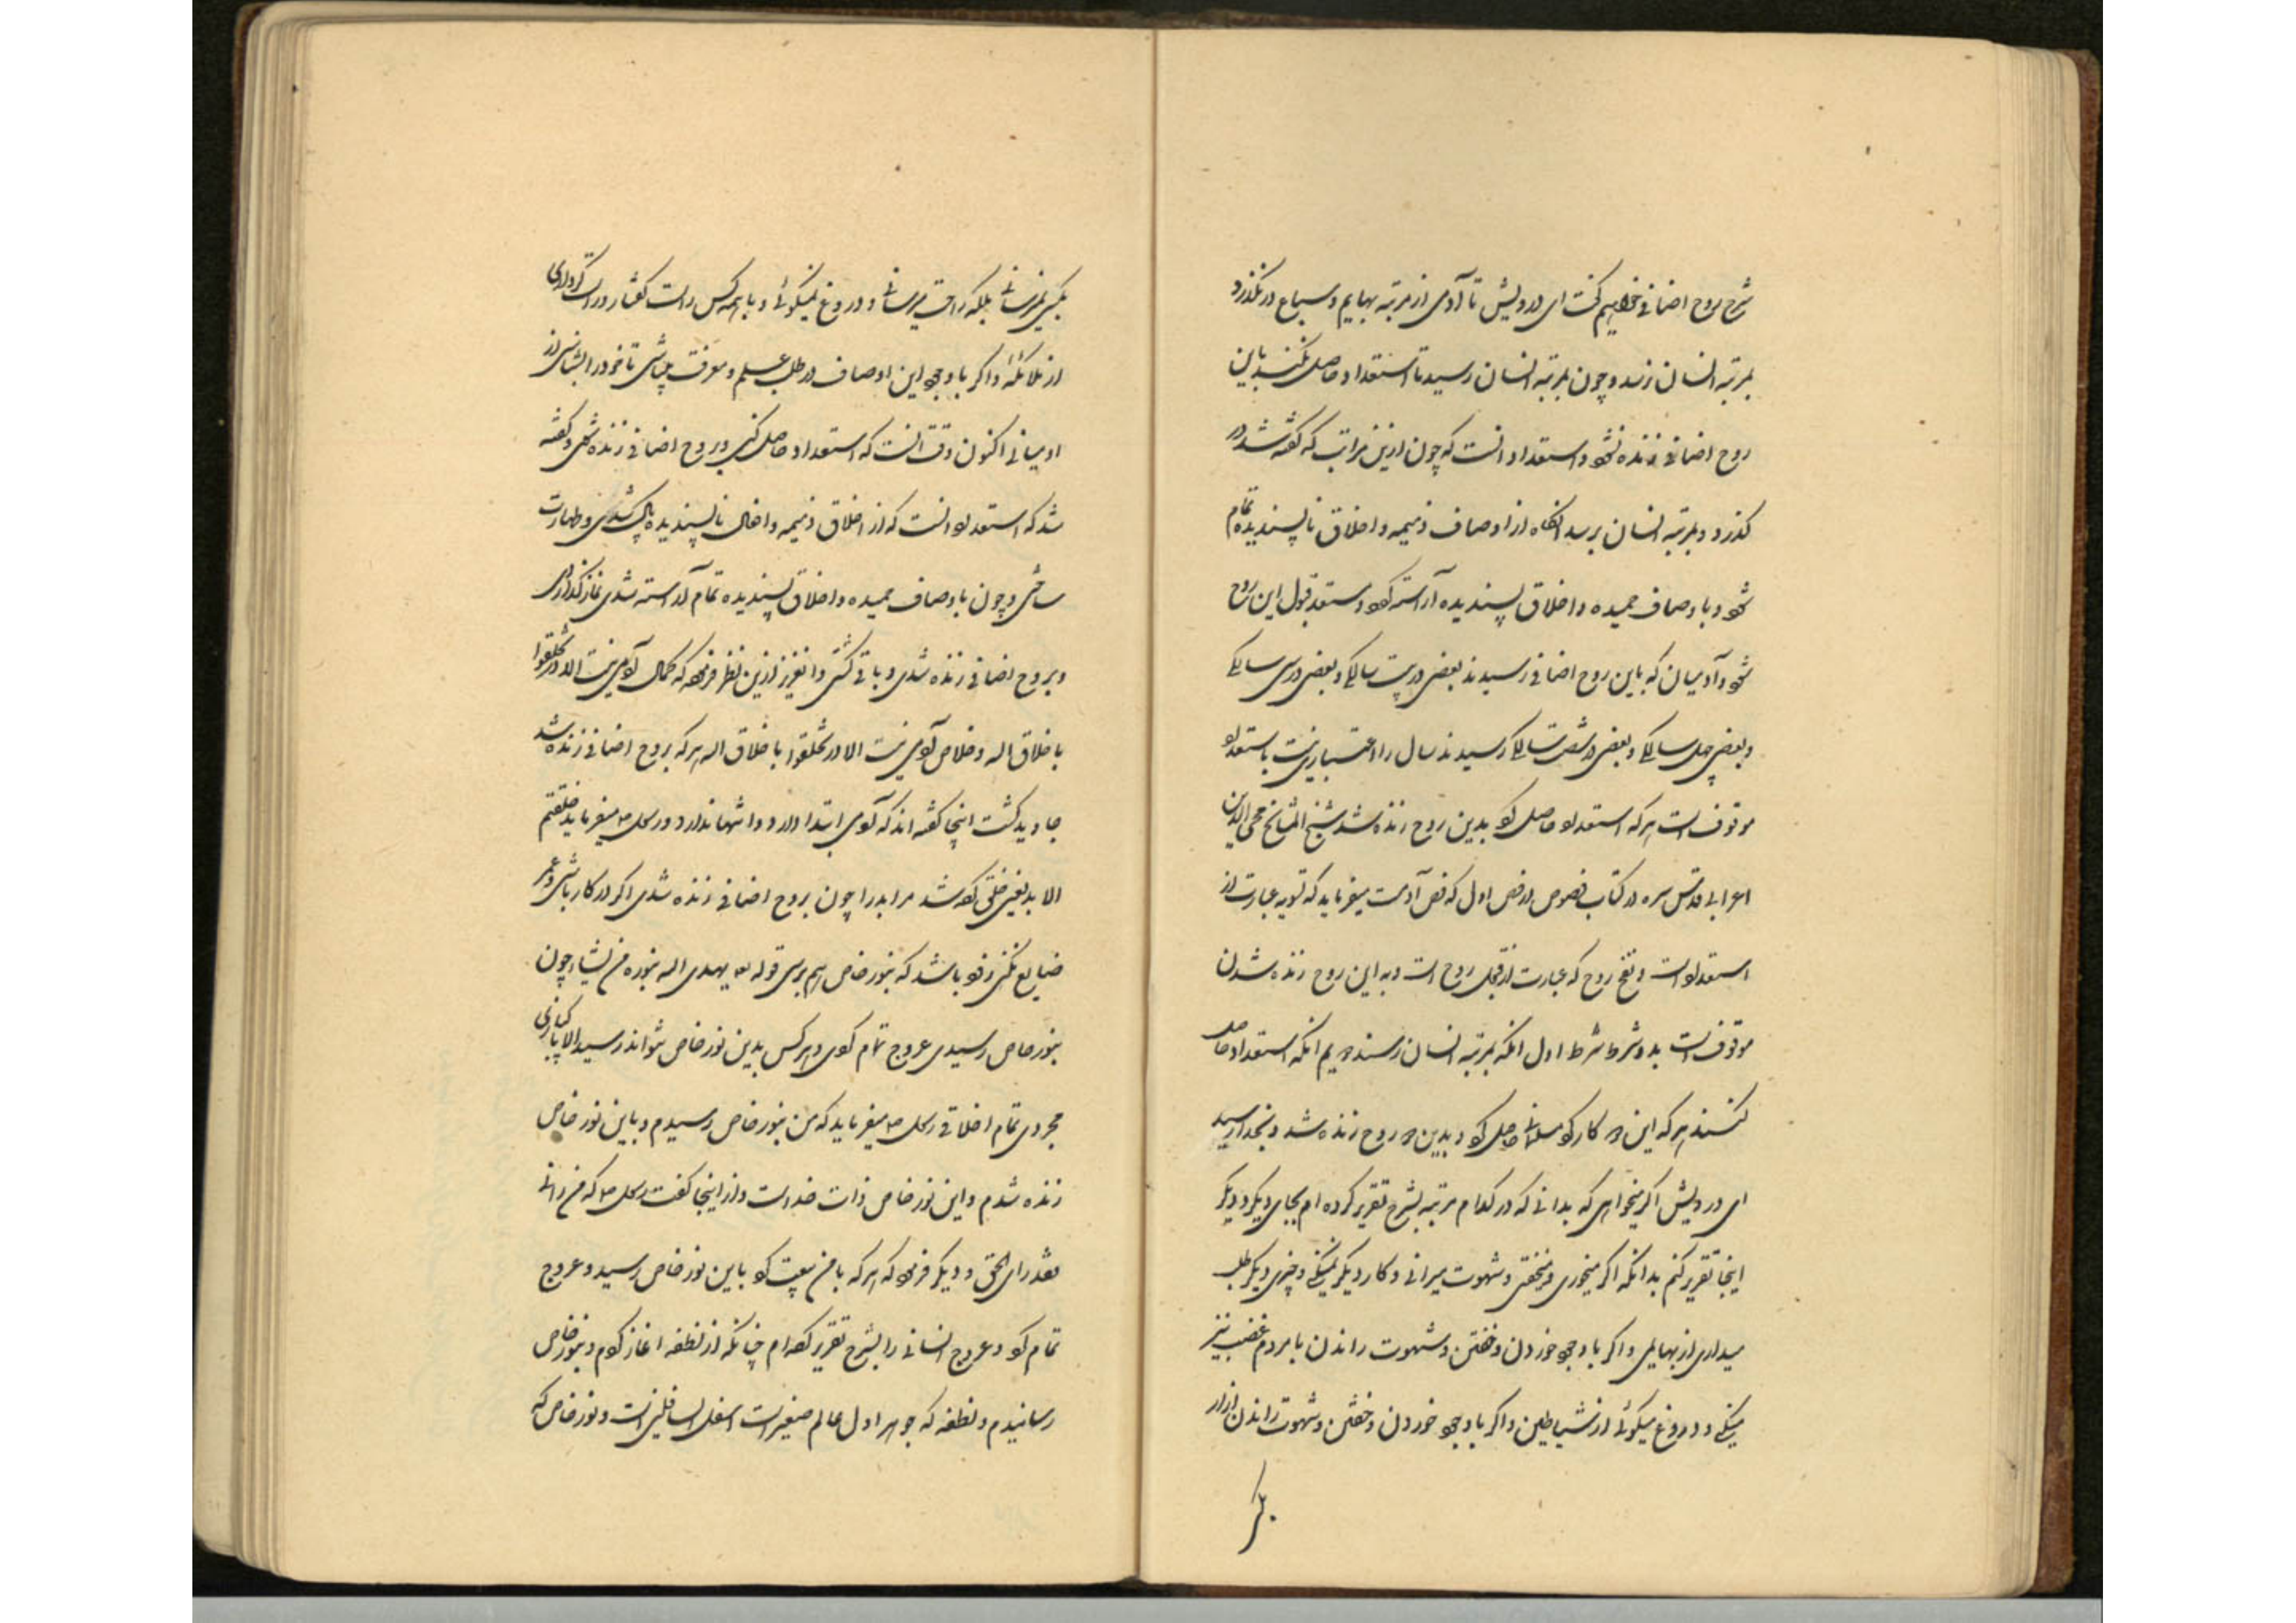 شرح روح اضافی خواهیم گفت ای درویش تا آدمی از مرتبه بهایم و سباع در نکذرد
بمرتبه انسان نرسد و چون بمرتبه انسان رسید تا استعداد حاصل نکند باین
روح اضافی زنده نشود و استعداد آنست که چون ازین مراتب که گفته شد در
کذرد و بمرتبه انسان برسد آنکاه از اوصاف ذمیمه و اخلاق ناپسندیده تمام
شود و باوصاف حمیده و اخلاق پسندیده آراسته کردد و مستعد قبول این روح
شود و آدمیان که باین روح اضافی رسیدند بعضی در بیست سالکی و بعضی در سی سالکی
و بعضی چهل سالکی و بعضی در شصت سالکی رسیدند سال را اعتبار نیست باستعداد
موقوف است هر که استعداد حاصل کرد بدین روح زنده شد شیخ المشایخ محی الدین
اعرابی قدس سره در کتاب فصوص در فص اول که فص آدمست میفرماید که تسویه عبارت از
استعداد است و نفخ روح که عبارت از قبول روح است و به این روح زنده شدن
موقوف است بدو شرط شرط اول آنکه بمرتبه انسان رسند دویم آنکه استعداد حاصل
کنند هر که این دو کار کرد حاصل کرد و بدین روح زنده شد و بخدا رسید
ای درویش اکر میخواهی که بدانی که در کدام مرتبه بشرح تقریر کرده ام بجای دیکر و دیکر
اینجا تقریر کنم بدانکه اکر میخوری و میخفتی و شهوت میرانی و کار دیکر نمیکنی و چیزی دیکر طلب
میداری از بهایمی و اکر با وجود خوردن و خفتن و شهوت راندن با مردم غضب نیز
میکنی و دروغ میکوئی از شیاطین و اکر با وجود خوردن و خفتن و شهوت راندن آزار
بکس
بکسی نمیرسانی بلکه راحت میرسانی و دروغ نمیکوئی و با همه کس راست کفتار و راست کرداری
از ملائکه و اکر با وجود این اوصاف در طلب علم و معرفت میباشی تا خود را بشناسی از
آدمیانی اکنون وقت آنست که استعداد حاصل کنی و بروح اضافی زنده شوی و کفته
شد که استعداد آنست که از اخلاق ذمیمه و افعال ناپسندیده پاک شدی و طهارت
ساختی و چون باوصاف حمیده و اخلاق پسندیده تمام آراسته شدی نماز کذاردی
و بروح اضافی زنده شدی و باقی کشتی و ازین نظر فرمود که کمال آدمی نیست الا در تخلقوا
باخلاق اله و خلاص آدمی نیست الا در تخلقوا باخلاق اله هر که بروح اضافی زنده شد
جاوید کشت اینجا کفته اند که آدمی ابتدا دارد و انتها ندارد و رسول میفرماید خلقتم
الا بد یعنی خلق کرده شد مر ابد را چون بروح اضافی زنده شدی اکر در کار باشی و عمر
ضایع نکنی زود باشد که بنور خاص هم برسی قوله یهدی اله بنوره من یشاء چون
بنور خاص رسیدی عروج تمام کردی و هر کس بدین نور خاص نتواند رسید الا پاکبازی
مجردی تمام اخلاقی رسول میفرماید که من بنور خاص رسیدم و باین نور خاص
زنده شدم و این نور خاص ذات خداست و از اینجا کفت رسول که من رآنی
فقد رای الحق و دیکر فرمود که هر که با من بیعت کرد باین نور خاص رسید و عروج
تمام کرد و عروج انسانی را بشرح تقریر کرده ام چنانکه از نطفه آغاز کردم و بنور خاص
رسانیدم و نطفه که جوهر اول عالم صغیر است اسفل السافلین است و نور خاص که